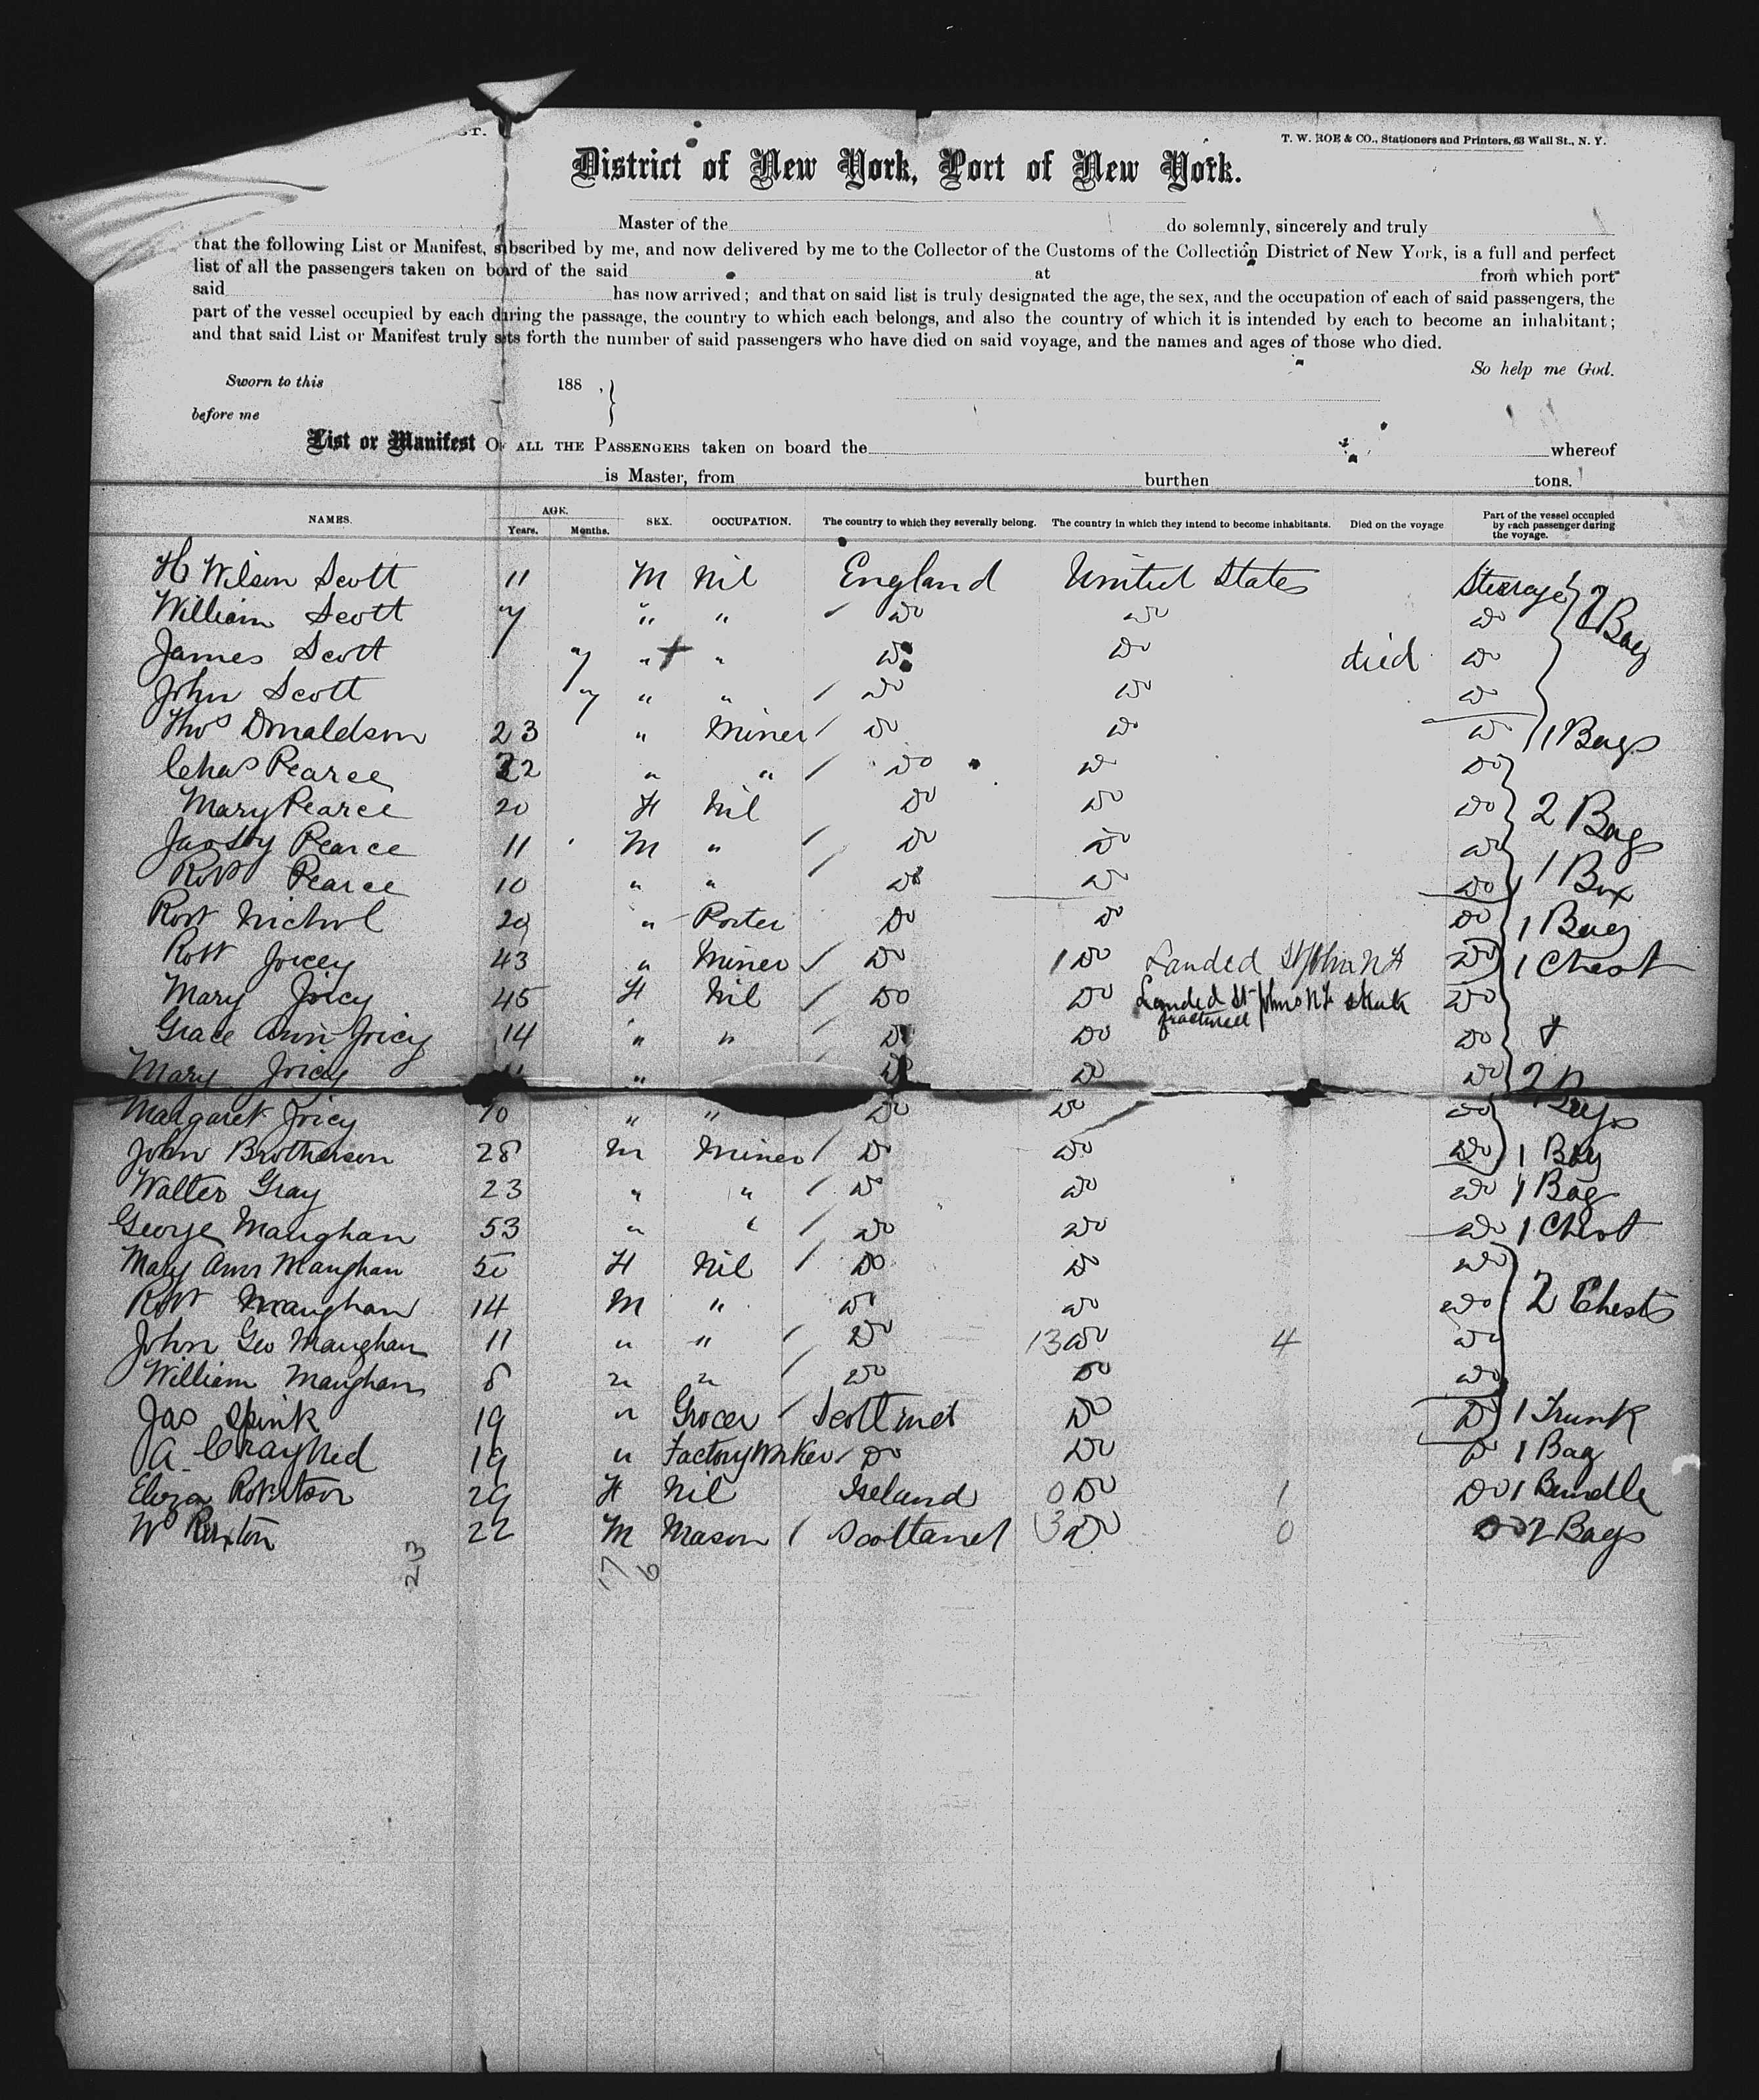 ST.
T. W. ROE & CO., Stationers and Printers, 63 Wall St., N. Y.
District of New York, Port of New York.
Master of the do solemnly, sincerely and truly
that the following List or Manifest, subscribed by me, and now delivered by me to the Collector of the Customs of the Collection District of New York, is a full and perfect
list of all the passengers taken on board of the said at from which port
said has now arrived; and that on said list is truly designated the age, the sex, and the occupation of each of said passengers, the
part of the vessel occupied by each during the passage, the country to which each belongs, and also the country of which it is intended by each to become an inhabitant;
and that said List or Manifest truly sets forth the number of said passengers who have died on said voyage, and the names and ages of those who died.
So help me God.
Sworn to this 188 , }
before me
List or Manifest OF ALL THE PASSENGERS taken on board the whereof
is Master, from burthen tons.
NAMES. AGE. Years. Months. SEX. OCCUPATION. The country to which they severally belong. The country in which they intend to become inhabitants. Died on the voyage Part of the vessel occupied by each passenger during the voyage.
H Wilson Scott 11 M Nil England United States Steerage
William Scott 7 " " / Do Do Do 2 Bag
James Scott 7 " + " Do Do died Do
John Scott 7 " " / Do Do Do
Thos Donaldson 23 " Miner / Do Do Do 1 Bags
Chas Pearce 22 " " / Do Do Do
Mary Pearce 20 F Nil Do Do Do 2 Bags
Pearce 11 M " / Do Do Do
Robt Pearce 10 " " / Do Do Do 1 Box
Robt Nichol 29 " Porter Do Do Do 1 Bag
Robt Joicey 43 " Miner / Do 1 Do Landed St John N F Do 1 Chest
Mary Joicy 45 F Nil / Do Do Landed St Johns NF skull fractured Do
Grace Ann Joicy 14 " " / Do Do Do
Mary Joicy 11 " Do Do Do 2 Bags
Margaret Joicy 10 " " Do Do Do
John Brotherson 28 M Miner / Do Do Do 1 Bag
Walter Gray 23 " " / Do Do Do 1 Bag
George Maughan 53 " " / Do Do Do 1 Chest
Mary Ann Maughan 50 F Nil / Do Do Do
Robt Maughan 14 M " Do Do Do 2 Chests
John Geo Maughan 11 " " / Do 13 Do 4 Do
William Maughan 8 " " / Do Do Do
Jas Spink 19 " Grocer / Scotland Do Do 1 Trunk
A. 19 " Factory Worker / Do Do Do 1 Bag
Eliza Robertson 29 F Nil Ireland 0 Do 1 Do 1 Bundle
Wm 22 M Mason / Scotland 3 Do 0 Do 2 Bags
23 17 6